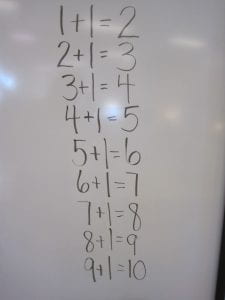 1+1=2
2+1=3
3+1=4
4+1=5
5+1=6
6+1=7
7+1=8
8+1=9
9+1=10